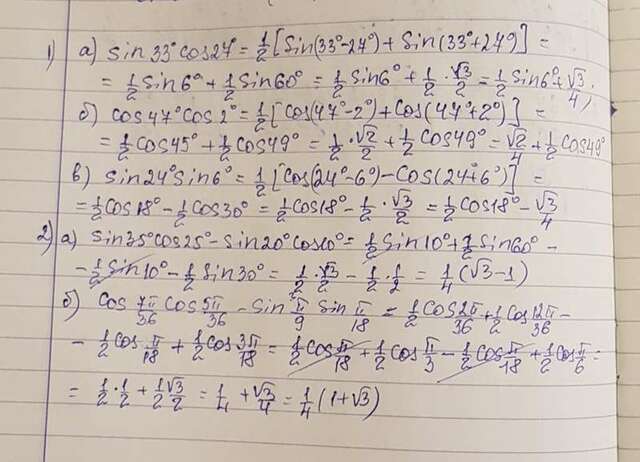 1) а) sin33°cos27° = 1/2[sin(33°-27°) + sin(33°+27°)] =
= 1/2 sin6° + 1/2 sin60° = 1/2 sin6° + 1/2 · √3/2 = 1/2 sin6° + √3/4;
б) cos47°cos2° = 1/2[cos(47°-2°) + cos(47°+2°)] =
= 1/2 cos45° + 1/2 cos49° = 1/2 · √2/2 + 1/2 cos49° = √2/4 + 1/2 cos49°
в) sin24°sin6° = 1/2[cos(24°-6°) - cos(24°+6°)] =
= 1/2 cos18° - 1/2 cos30° = 1/2 cos18° - 1/2 · √3/2 = 1/2 cos18° - √3/4
2) а) sin35°cos25° - sin20°cos10° = 1/2 sin10° + 1/2 sin60° -
- 1/2 sin10° - 1/2 sin30° = 1/2 · √3/2 - 1/2 · 1/2 = 1/4 (√3-1)
б) cos 7π/36 cos 5π/36 - sin π/9 sin π/18 = 1/2 cos 2π/36 + 1/2 cos 12π/36 -
- 1/2 cos π/18 + 1/2 cos 3π/18 = 1/2 cos π/18 + 1/2 cos π/3 - 1/2 cos π/18 + 1/2 cos π/6 =
= 1/2 · 1/2 + 1/2 √3/2 = 1/4 + √3/4 = 1/4 (1+√3)